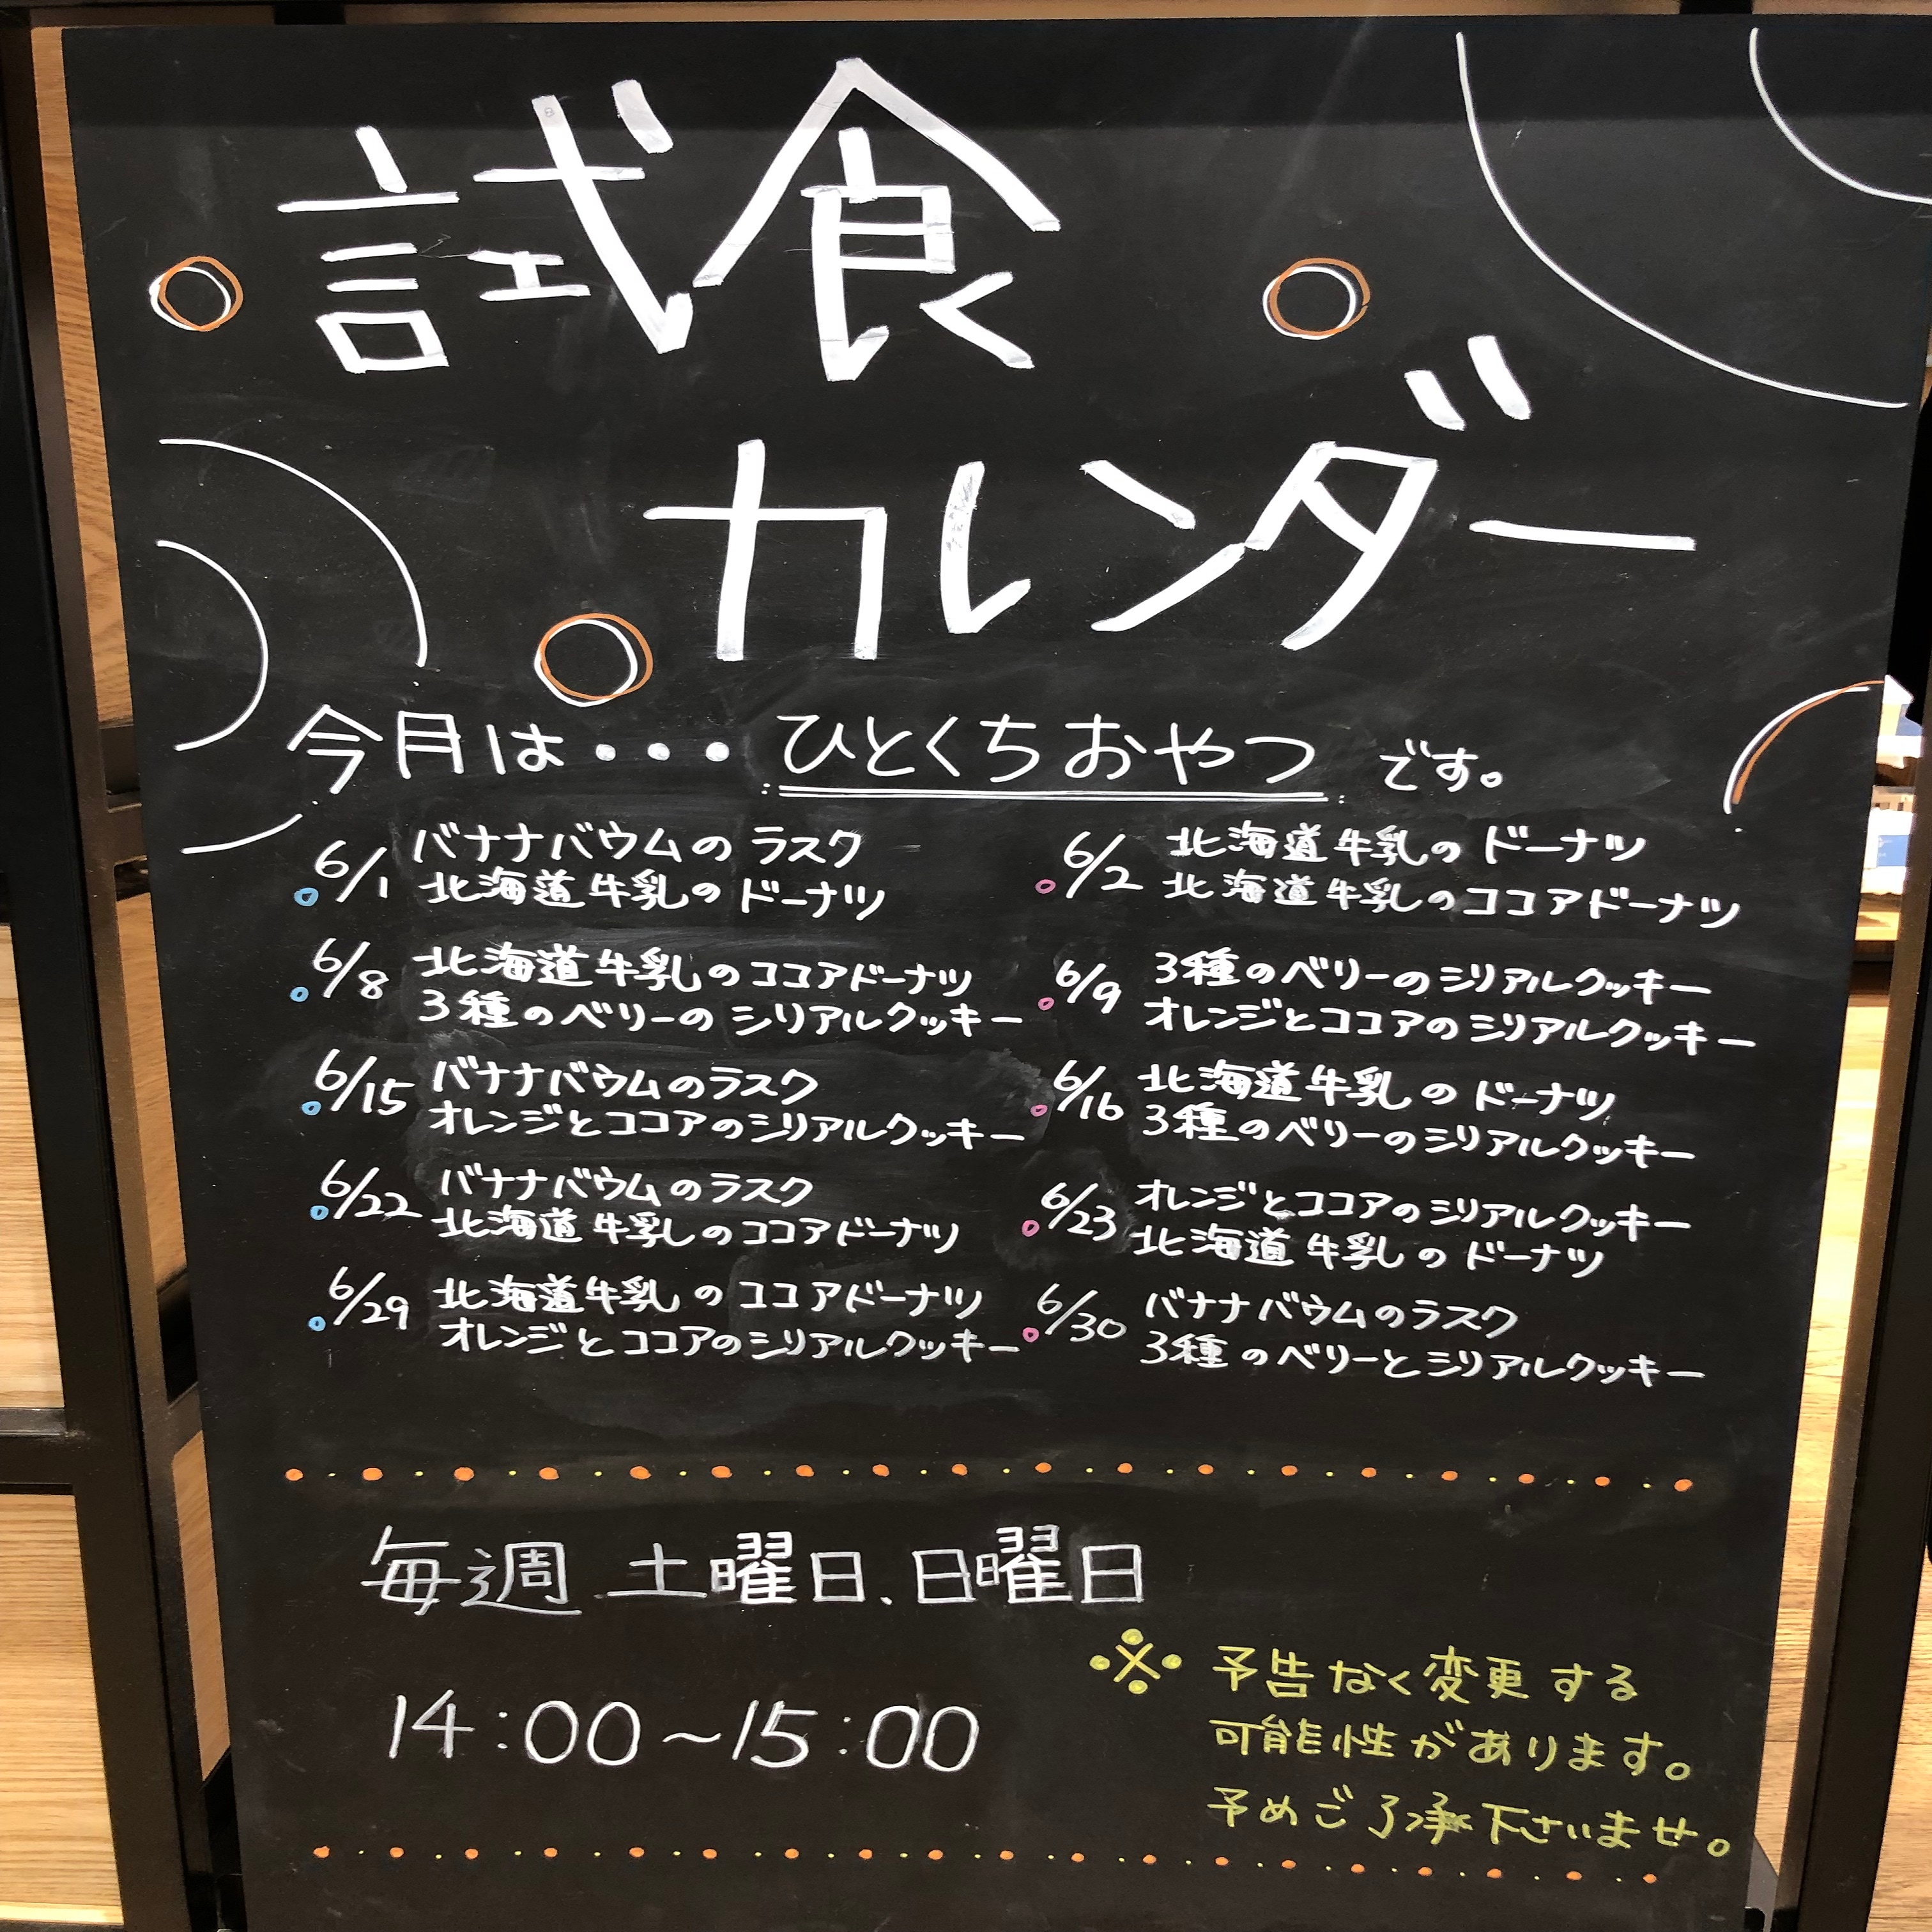 試食
カレンダー
今月は・・・ひとくちおやつ です。
6/1 バナナバウムのラスク
北海道牛乳のドーナツ
6/2 北海道牛乳のドーナツ
北海道牛乳のココアドーナツ
6/8 北海道牛乳のココアドーナツ
3種のベリーのシリアルクッキー
6/9 3種のベリーのシリアルクッキー
オレンジとココアのシリアルクッキー
6/15 バナナバウムのラスク
オレンジとココアのシリアルクッキー
6/16 北海道牛乳のドーナツ
3種のベリーのシリアルクッキー
6/22 バナナバウムのラスク
北海道牛乳のココアドーナツ
6/23 オレンジとココアのシリアルクッキー
北海道牛乳のドーナツ
6/29 北海道牛乳のココアドーナツ
オレンジとココアのシリアルクッキー
6/30 バナナバウムのラスク
3種のベリーとシリアルクッキー
毎週 土曜日、日曜日
14:00～15:00
※ 予告なく変更する
可能性があります。
予めご了承下さいませ。